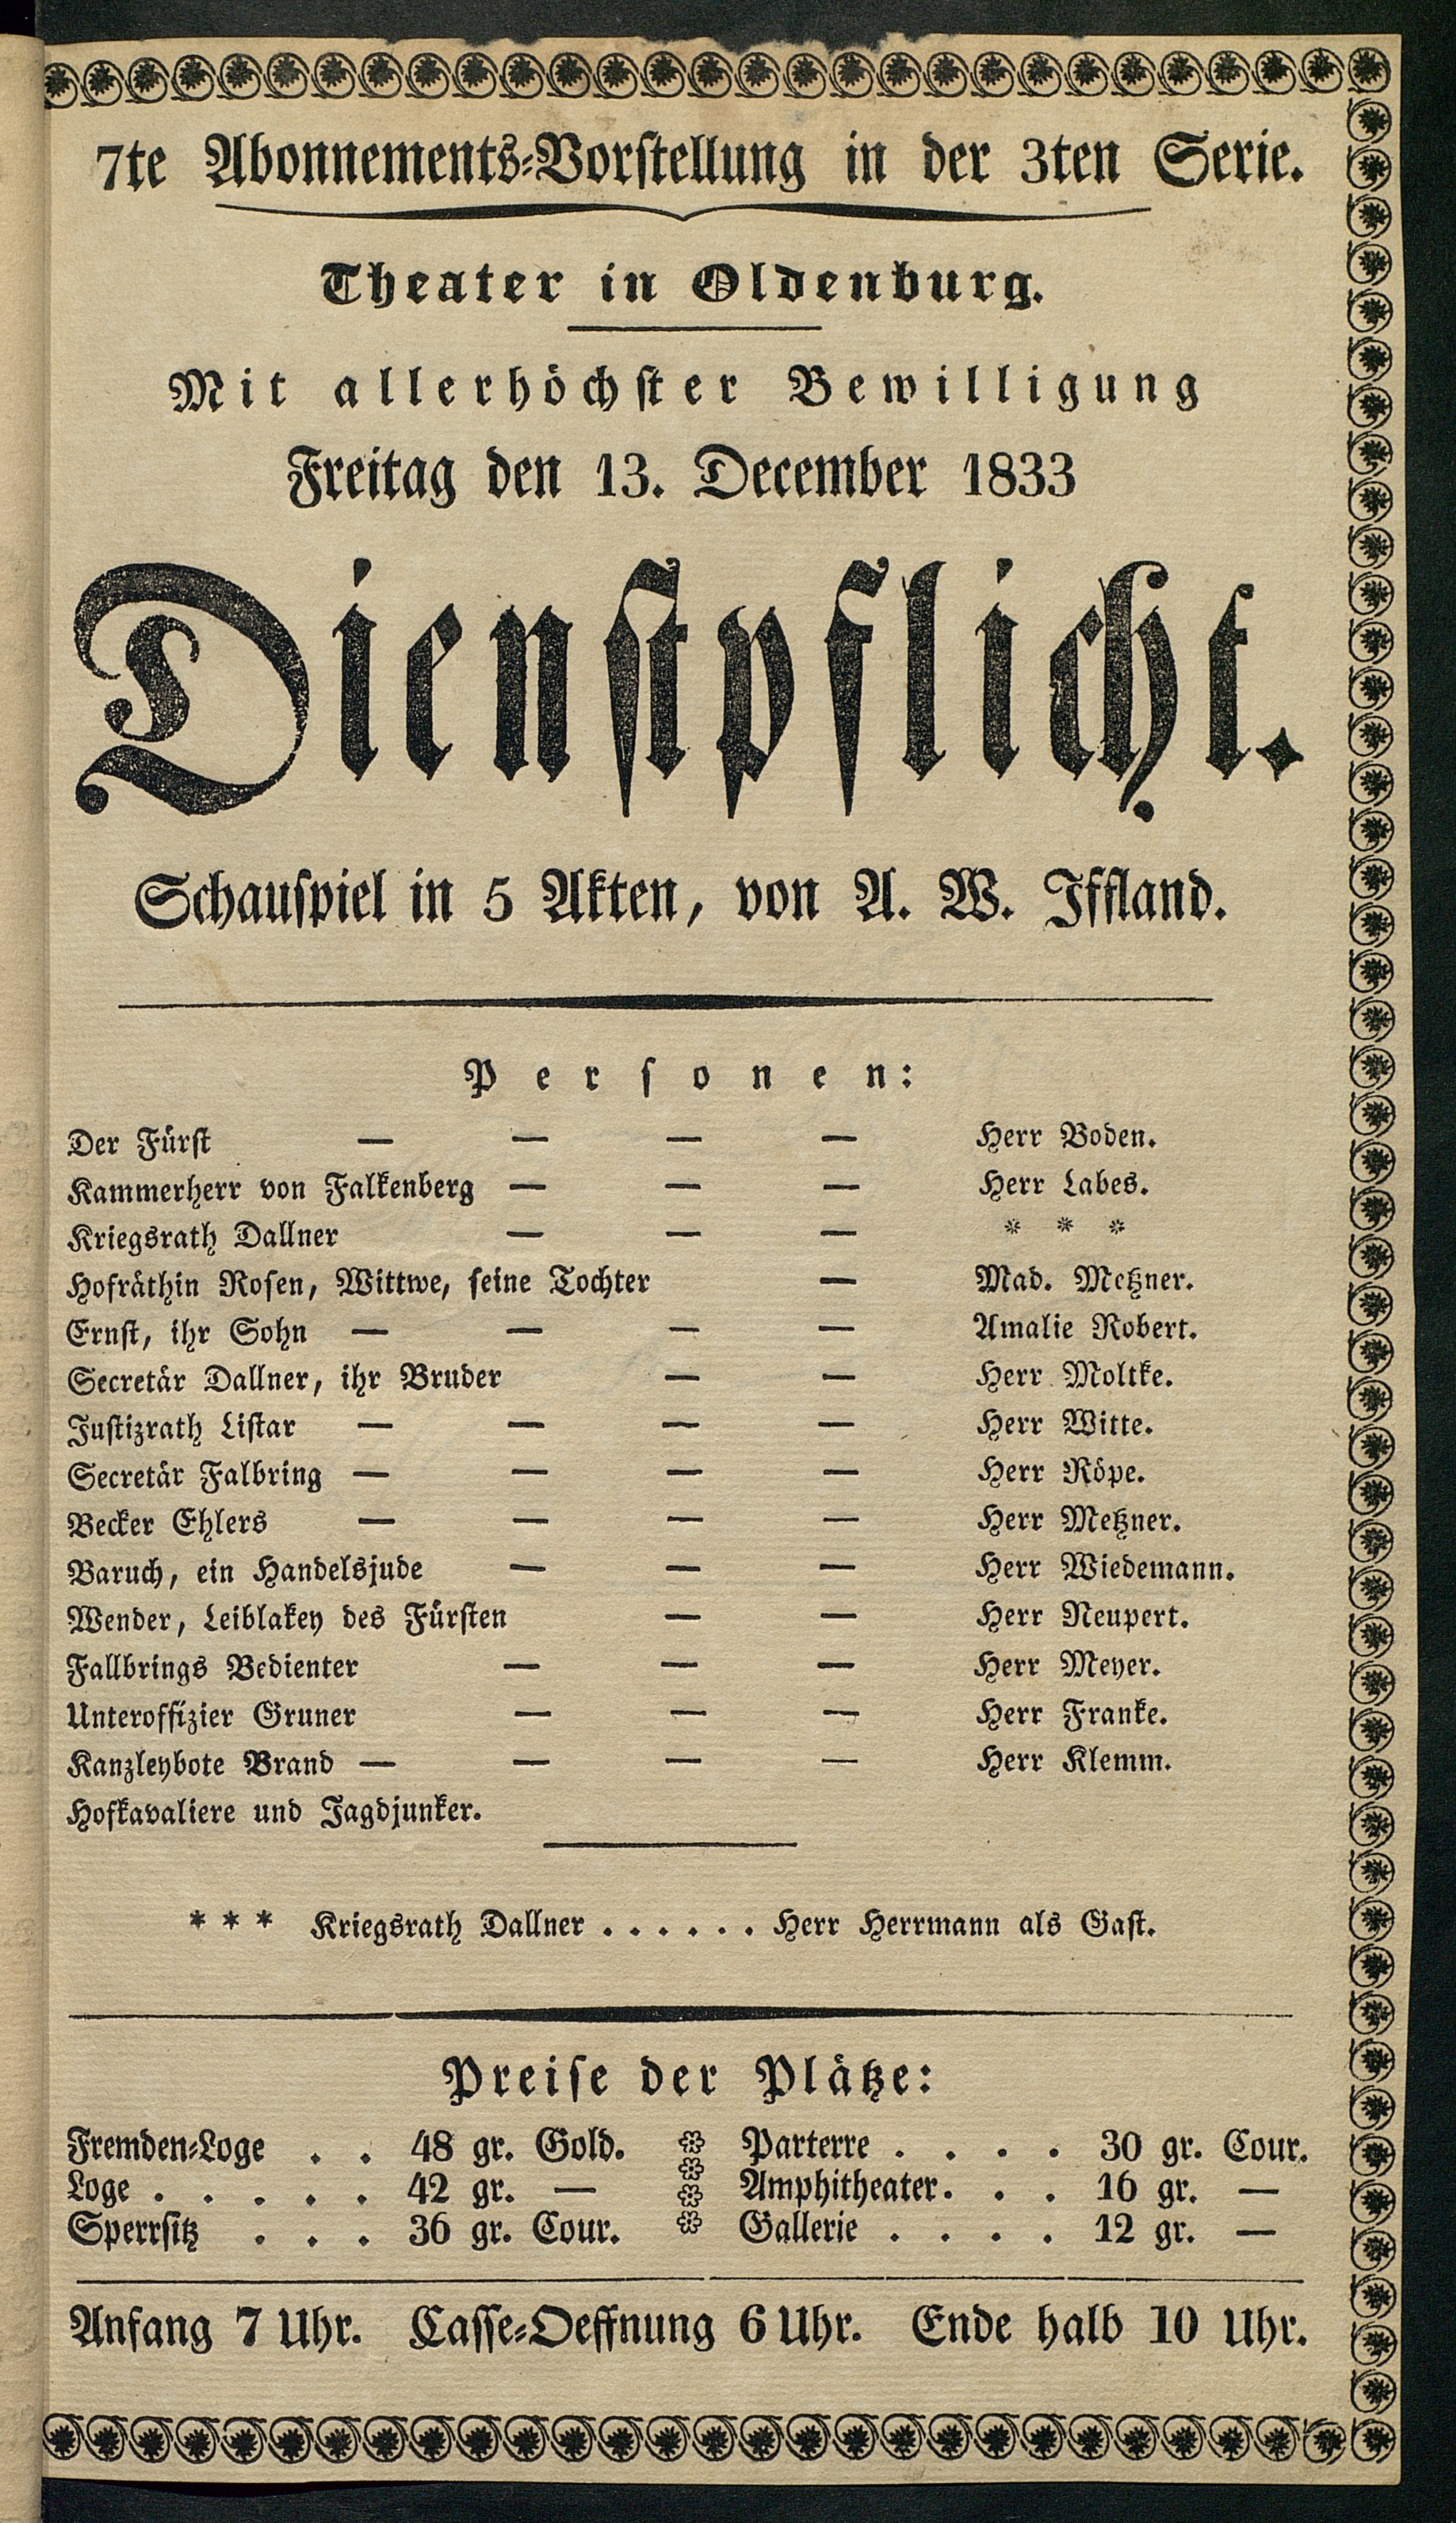 7te Abonnements-Vorstellung in der 3ten Serie.
Theater in Oldenburg.
Mit allerhöchster Bewilligung
Freitag den 13. December 1833
Dienstpflicht.
Schauspiel in 5 Akten, von A. W. Iffland.
Personen:
Der Fürst — — — — Herr Boden.
Kammerherr von Falkenberg — — — Herr Labes.
Kriegsrath Dallner — — — * * *
Hofräthin Rosen, Wittwe, seine Tochter — Mad. Meßner.
Ernst, ihr Sohn — — — — Amalie Robert.
Secretär Dallner, ihr Bruder — — Herr Moltke.
Justizrath Listar — — — — Herr Witte.
Secretär Falbring — — — — Herr Röpe.
Becker Ehlers — — — — Herr Meßner.
Baruch, ein Handelsjude — — — Herr Wiedemann.
Wender, Leiblakey des Fürsten — — Herr Neupert.
Fallbrings Bedienter — — — Herr Meyer.
Unteroffizier Gruner — — — Herr Franke.
Kanzleybote Brand — — — — Herr Klemm.
Hofkavaliere und Jagdjunker.
* * * Kriegsrath Dallner . . . . . . Herr Herrmann als Gast.
Preise der Plätze:
Fremden-Loge . . 48 gr. Gold. Parterre . . . . 30 gr. Cour.
Loge . . . . . 42 gr. — Amphitheater. . . 16 gr. —
Sperrsitz . . . 36 gr. Cour. Gallerie . . . . 12 gr. —
Anfang 7 Uhr. Casse-Oeffnung 6 Uhr. Ende halb 10 Uhr.